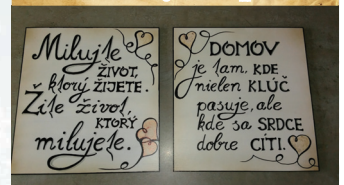 Milujte
ŽIVOT,
ktorý ŽIJETE.
Žite život,
KTORÝ
milujete.
DOMOV
je tam, KDE
nielen KĽÚČ
pasuje, ale
kde sa SRDCE
dobre CÍTI.